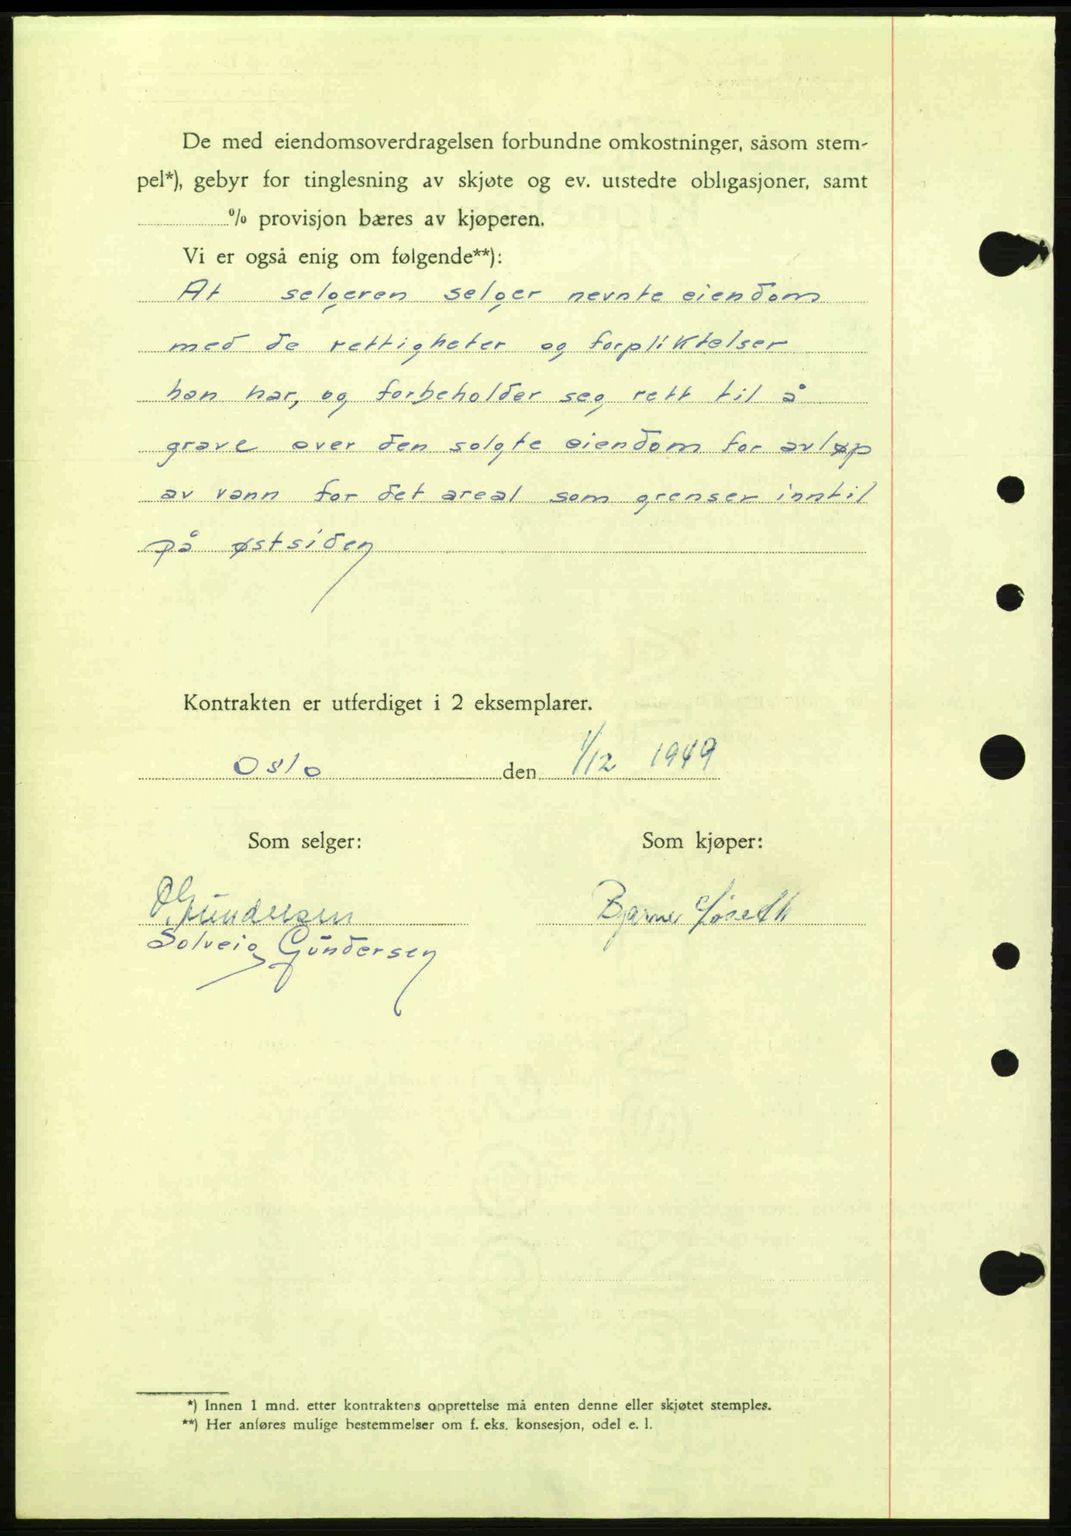 De med eiendomsoverdragelsen forbundne omkostninger, såsom stem-
pel*), gebyr for tinglesning av skjøte og ev. utstedte obligasjoner, samt
% provisjon bæres av kjøperen.
Vi er også enig om følgende**):
At selgeren selger nevnte eiendom
med de rettigheter og forpliktelser
han har, og forbeholder seg rett til å
grave over den solgte eiendom for avløp
av vann for det areal som grenser inntil
på østsiden
Kontrakten er utferdiget i 2 eksemplarer.
Oslo den 1/12 1949
Som selger: Som kjøper:
Gundersen Bjarne
Solveig Gundersen
*) Innen 1 mnd. etter kontraktens opprettelse må enten denne eller skjøtet stemples.
**) Her anføres mulige bestemmelser om f. eks. konsesjon, odel e. l.